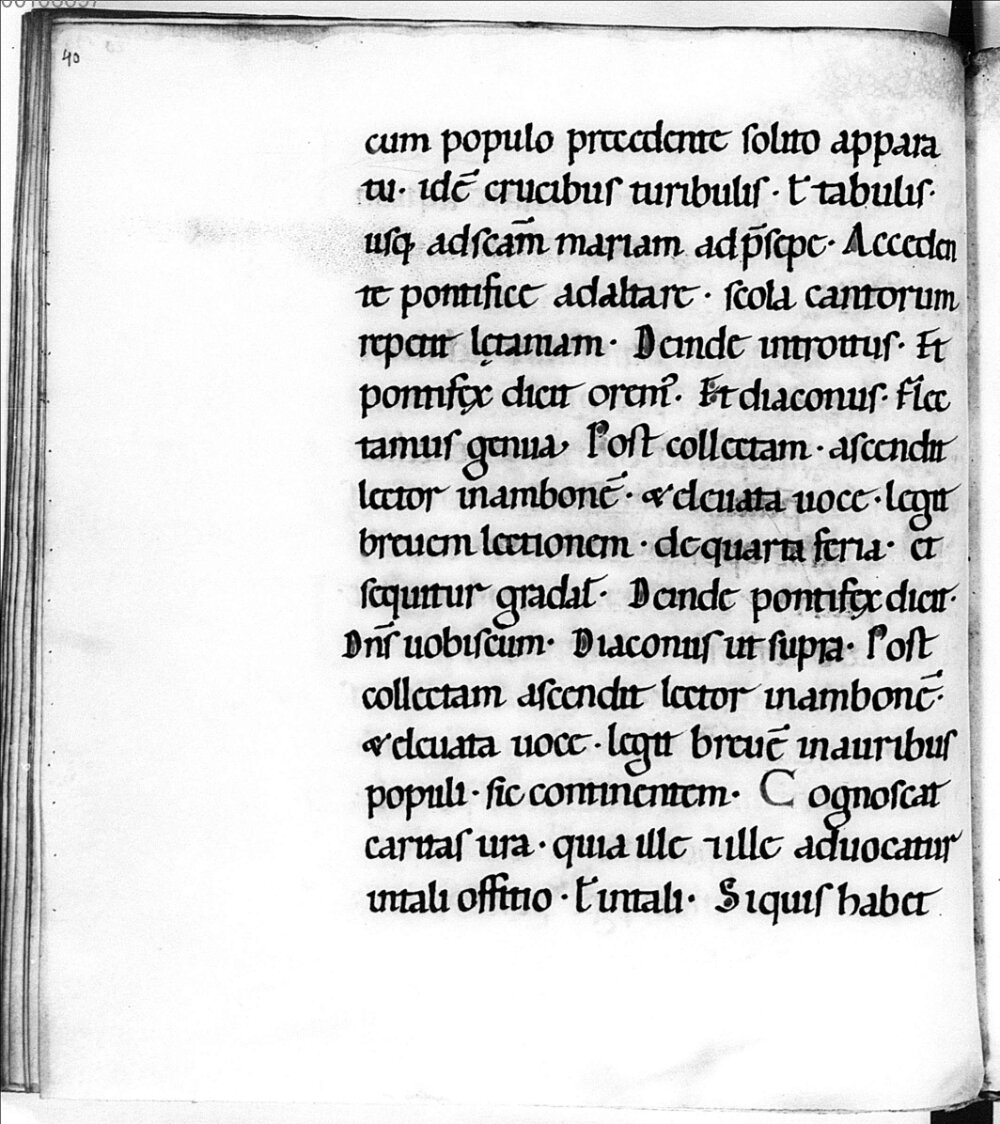 40
cum populo precedente solito appara
tu· idē crucibus turibulis· ł tabulis·
usq; adscām mariam adp̄sepe· Acceden
te pontifice adaltare· scola cantorum
repetit lętaniam· Deinde introitus· Et
pontifęx dicit orem̄· Et diaconus· Flec
tamus genua, Post collectam· ascendit
lector inambonē· & eleuata uoce· legit
breuem lectionem· dequarta feria· et
sequitur gradał· Deinde pontifęx dicit·
Dn̄s uobiscum· Diaconus ut supra· Post
collectam ascendit lector inambonē·
& eleuata uoce· legit breuē inauribus
populi· sic continentem· Cognoscat
caritas ura· quia ille ⁊ ille aduocatur
intali offitio· ł intali· Siquis habet